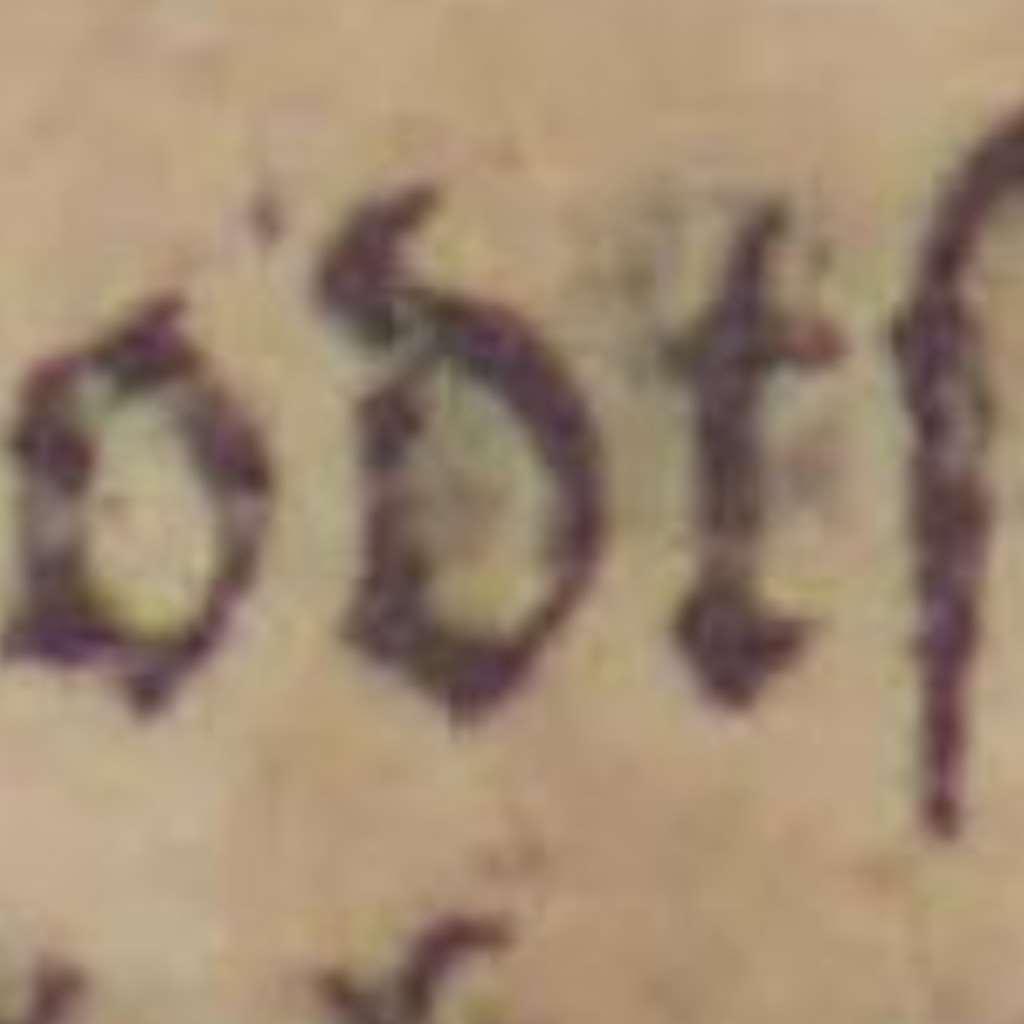 odtſ